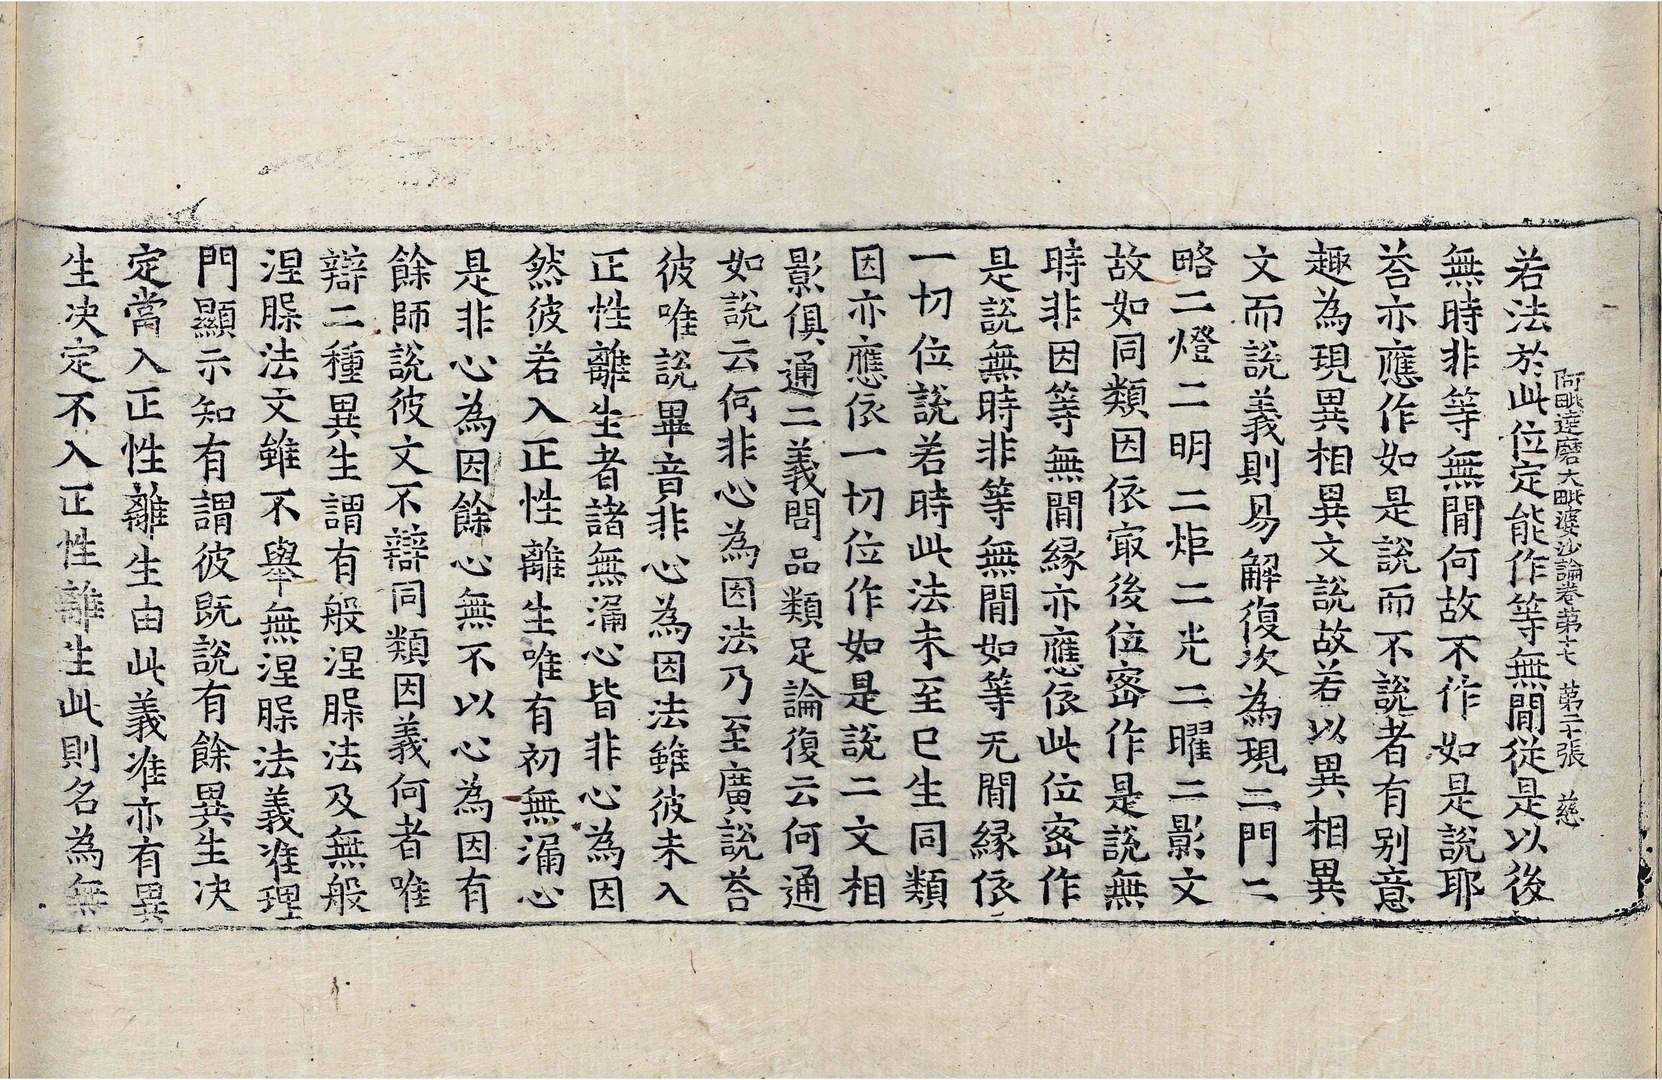 阿毗達磨大毗婆沙論卷第十七　第二十張　慈
若法於此位定能作等無閒從是以後
無時非等無閒何故不作如是說耶
荅亦應作如是說而不說者有别意
趣為現異相異文說故若以異相異
文而說義則易解復次為現二門二
略二燈二明二炬二光二曜二影文
故如同類因依㝡後位宻作是說無
時非因等無閒縁亦應依此位宻作
是說無時非等無閒如等无閒縁依
一切位說若時此法未至已生同類
因亦應依一切位作如是說二文相
影俱通二義問品類足論復云何通
如說云何非心為因法乃至廣說荅
彼唯說畢音非心為因法雖彼未入
正性離生者諸無漏心皆非心為因
然彼若入正性離生唯有初無漏心
是非心為因餘心無不以心為因有
餘師說彼文不辯同類因義何者唯
辯二種異生謂有般涅槃法及無般
涅槃法文雖不舉無涅槃法義准理
門顯示知有謂彼既說有餘異生决
定當入正性離生由此義准亦有異
生决定不入正性離生此則名為無